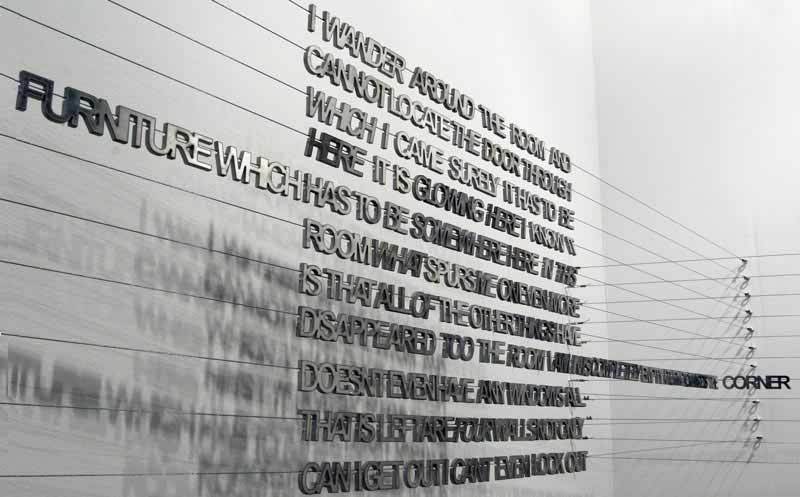 I WANDER AROUND THE ROOM AND
CANNOT LOCATE THE DOOR THROUGH
WHICH I CAME SURELY IT HAS TO BE
HERE IT IS GLOWING HERE I KNOW IT
FURNITURE WHICH HAS TO BE SOMEWHERE HERE IN THIS
ROOM WHAT SPURS ME ON EVEN MORE
IS THAT ALL OF THE OTHER THINGS HAVE
DISAPPEARED TOO THE ROOM I AM IN IS COMPLETELY CORNER
DOESNT EVEN HAVE ANY WINDOWS ALL
THAT IS LEFT ARE FOUR WALLS NOT ONLY
CAN I GET OUT I CANT EVEN LOOK OUT